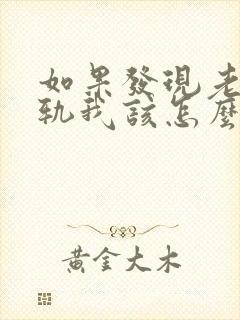 如果發現老
軌我該怎麼
黃金大木